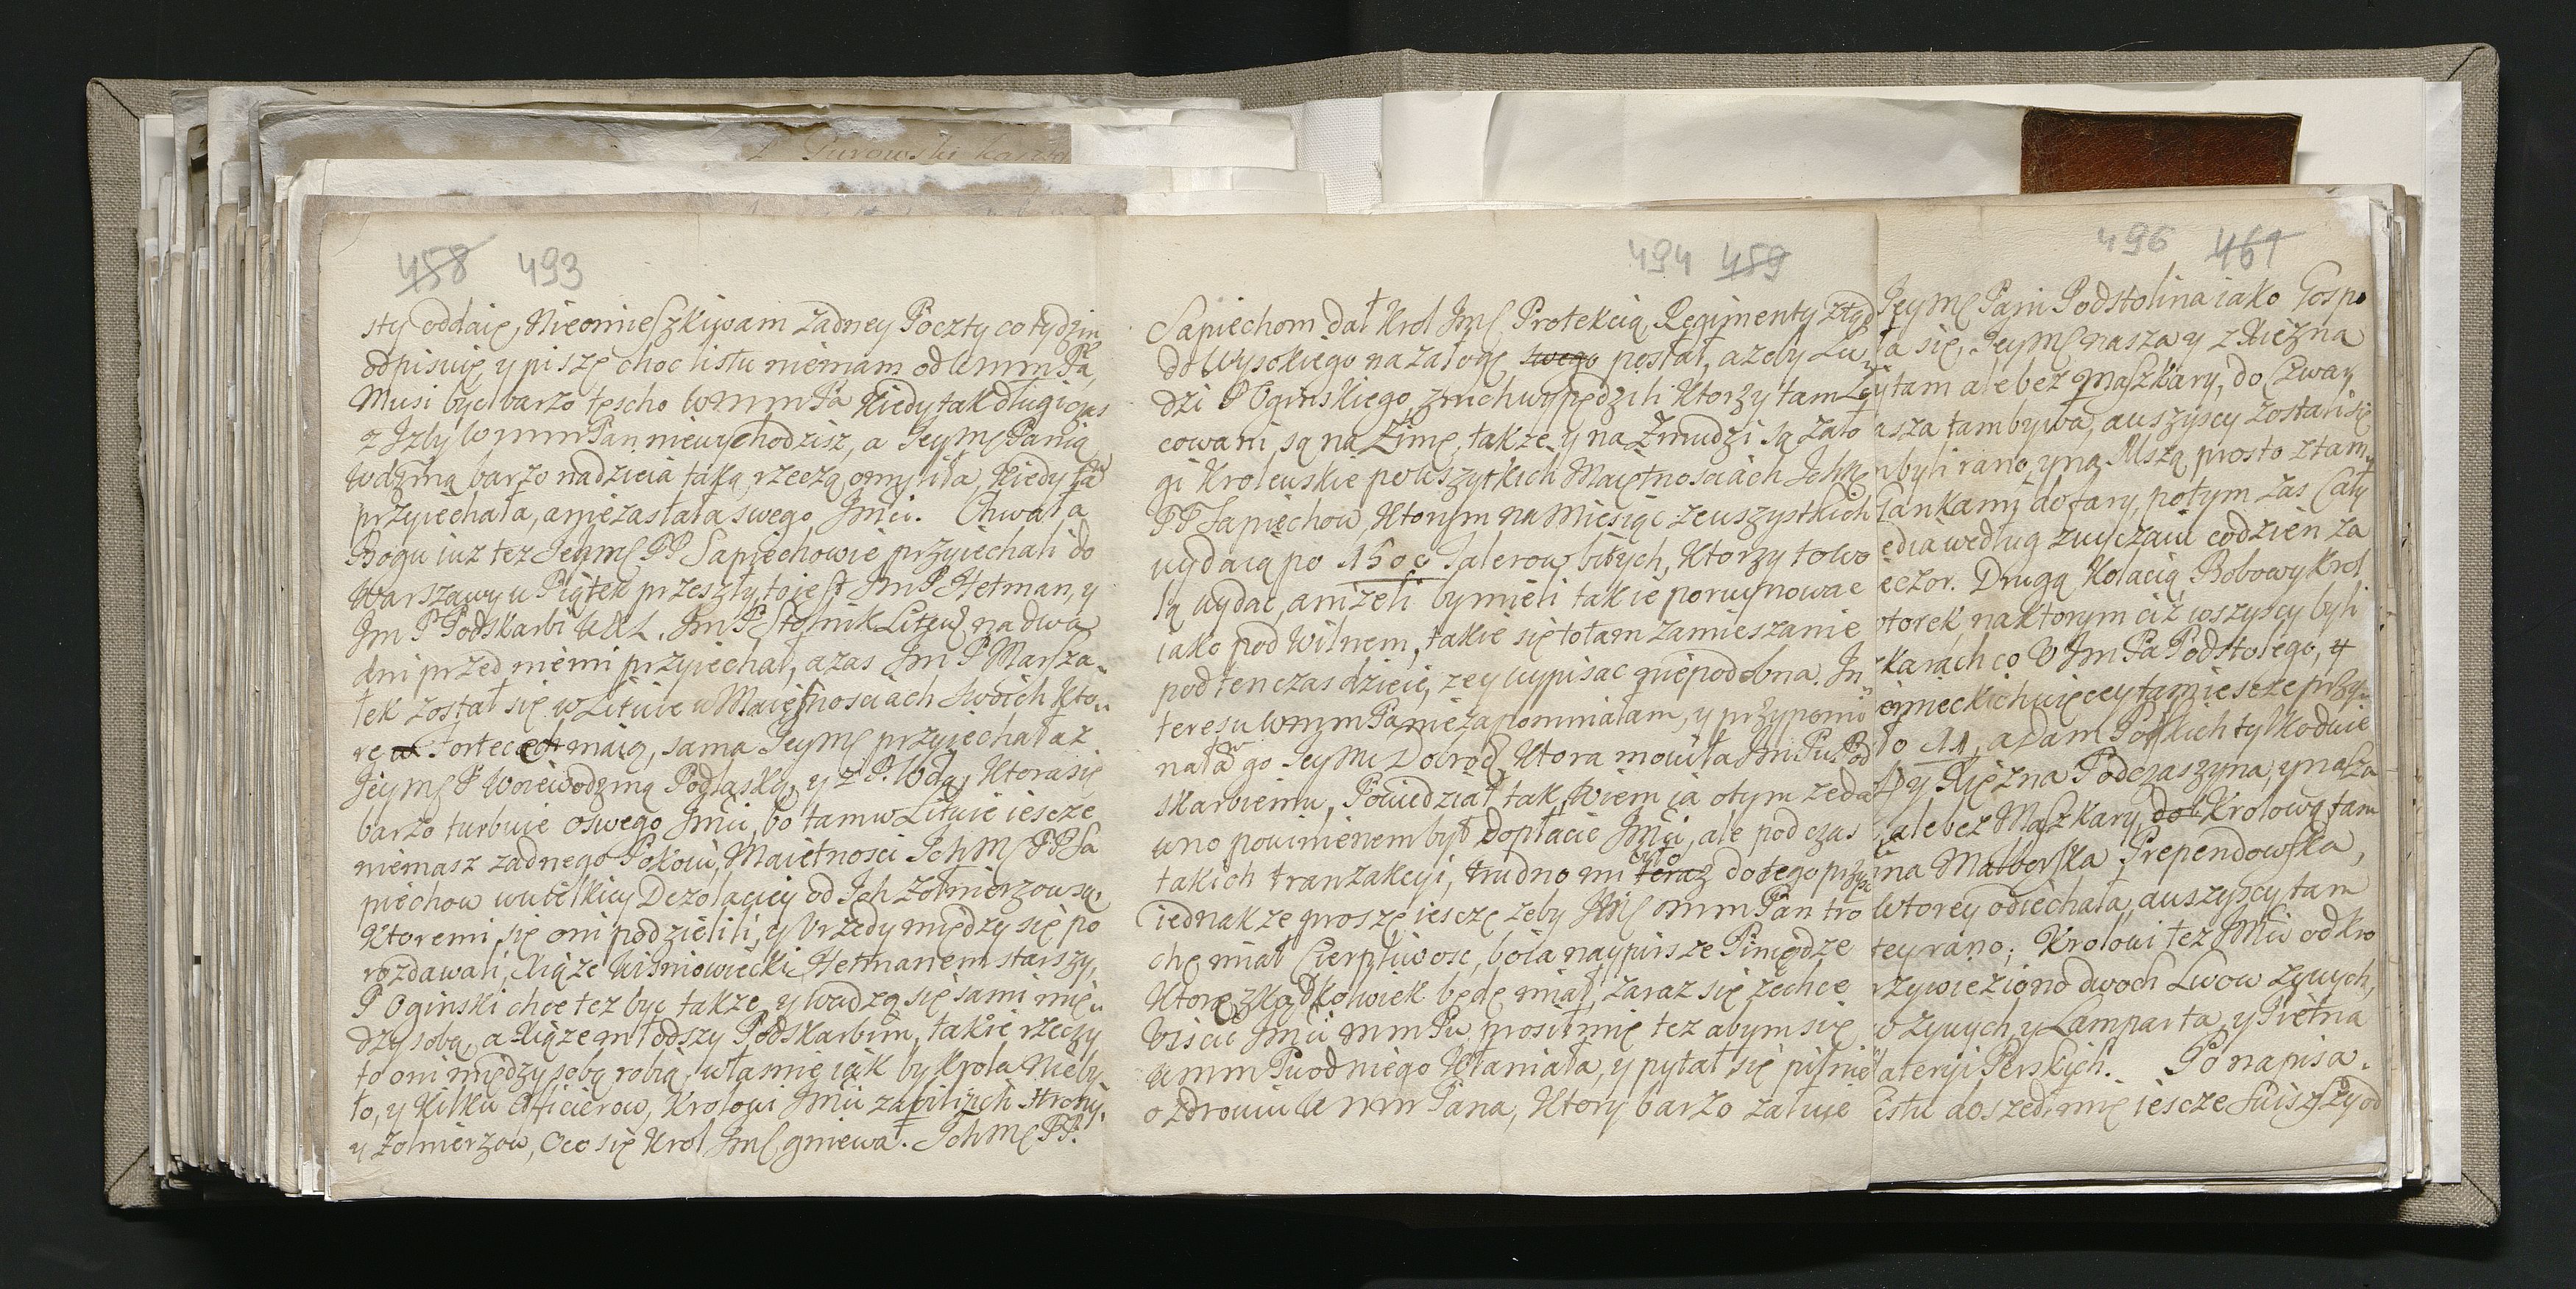 Purowski
458 493
sty oddaię, Nieomieszkiwam żadney Poczty co tydzin
odpisuię y piszę choc listu niemam od Wmm Pa,
Musi być barzo tęscho Wmm Pa kiedy tak długi czas
z Izby Wmm Pan niewychodzisz, a Jeymć Panią
Wdzną barzo nadzieia taką rzeczą omyliła, kiedy tu
przyiechała, a niezastała swego Jmci. Chwała
Bogu iuz tez Ichmć PP Sapiechowie przyiechali do
Warszawy w Piątek przeszły, to jest Jm P Hetman, y
Jm P Podskarbi WXL. Jm P Stolnik Litew na dwa
dni przed niemi przyiechał, a zas Jm P Marsza-
łek został się w Litwie w Maiętnosciach swoich kto-
re w Fortecech maią, sama Jeymć przyiechała z
Jeymć P Woiewodziną Podlaską, y z P. Wdą, ktora się
barzo turbuie o swego Jmci, bo tam w Litwie iescze
niemasz zadnego Pokoiu, Maiętnosci Ichmć PP Sa
piechow w wielkiey Dezolaciey od Ich Zołnierzow są,
ktoremi się oni podzielili, y Urzędy między się po
rozdawali, Xiąze Wisniowiecki Hetmanem starszy,
P Oginski chce tez byc także, y wadzą się sami mię-
dzy sobą, a Xiąze młodszy Podskarbim, takie rzeczy
to oni między sobą robią, własnie iak by Krola nieby
ło, y kilku Officierow, Krolowi Jmci zabili z ich strony,
y Zołnierzow, Oco się Krol Jmć gniewa. Ichmć PP.
494 459
Sapiechom dał Krol Jmć Protekcią, Regimenty ztąd
do Wysokiego na załogę swego posłał, azeby Lu-
dzi P Oginskiego zmich wypędzili ktorzy tam
cowani są na Zimę, także y na Zmudzi są zało
gi Krolewskie po wszytkich Maiętnosciach Ichmć
PP Sapiechow, ktorym na Miesiąc ze wszystkich
wydaią po 1500 Talerow bitych, ktorzy to wo
lą wydac, anizeli by mieli takie porujnowae
iako pod Wilnem, takie się to tam zamieszanie
pod ten czas dzieie, ze y wypisac niepodobna. In-
teresu Wmm Pa niezapomniałam, y przypomi-
nała go Jeymci Dobrod, ktora mowiła Jm Pu Pod
skarbiemu, Powiedział tak, Wiem ia o tym ze da
wno powinienem był dopłacic Jmci, ale pod czas
takich tranzakcyi, trudno mi było teraz do tego przyść
iednakze proszę iescze zeby Jmć mm Pan tro
chę miał Cierpliwosc, bo ia naypirsze Piniądze
ktorę zkądkolwiek będę miał, zaraz się zechce
Viscic Jmci mm Pu, prosił mię tez abym się
Wmm Pu od niego kłaniała, y pytał się pilnie
o zdrowiu Wmm Pana, ktory barzo załuie
496 461
Jeymć Pani Podstolina iako Gospo
ła się, Jeymć nasza y z Xiezna
tam ale bez Maszkary, do Czwar
asza tam bywa, a wszyscy zostali się
byli rano, y na Mszą prosto z tam-
Sankami do fary, potym zas Cały
edia według zwyczaiu codzien za
eczor. Drugą Kolacią Bobowy Krol
torek na ktorym ciż wszyscy byli
karach co U Jm Pa Podstolego, y
iemieckich więcey tam iescze przy-
ło 11, a Dam Polskich tylko dwie
y Xięzna Podczaszyna, y nasza
ale bez Maszkary, do Krolowy tam
ina Malborska Prependowska,
Wtorey odiechała, a wszyscy tam
tey rano; Krolowi tez Jmci od kro
rzywieziono dwoch Lwow zywych,
w zywych, y Lamparta, y Piętna
ateryi Perskich. Po napisa-
istu doszedł mię iescze świszzy od